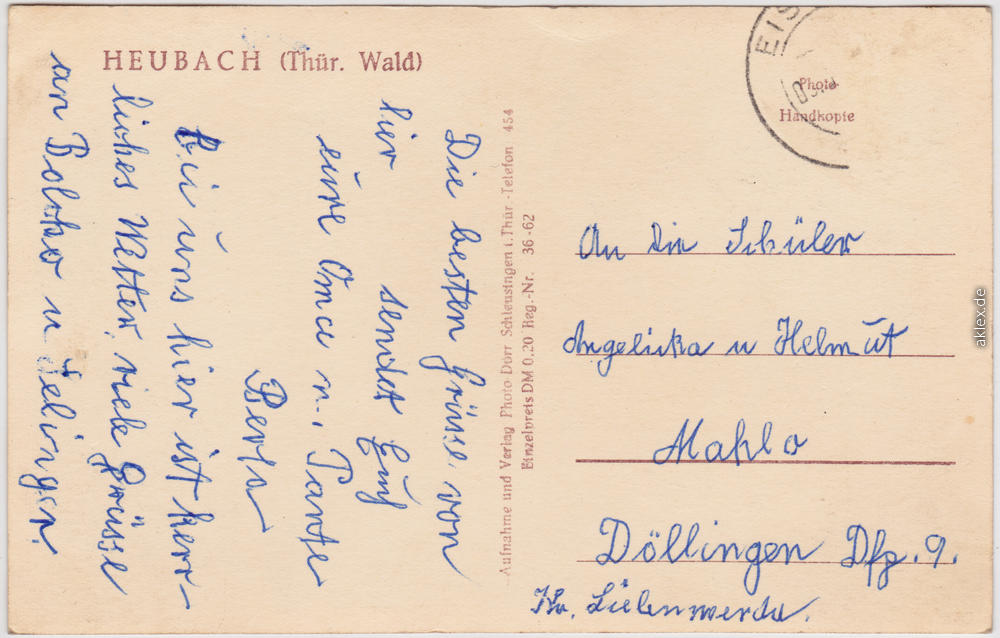 HEUBACH (Thür. Wald)
Die besten Grüsse von
hier sendet Euch
eure Omce u. Tante
Berta
Bei uns hier ist herr-
liches Wetter, viele Grüsse
an Bolcho u
Aufnahme und Verlag Photo-Dörr Schleusingen i. Thür. -Telefon 454
Einzelpreis DM 0.20 Reg.-Nr. 36-62
EIS
Photo
Handkopie
An die Schüler
Angelicka u Helmut
Mahlo
Döllingen Dfg. 9.
Kr. Liebenwerda.
aklex.de